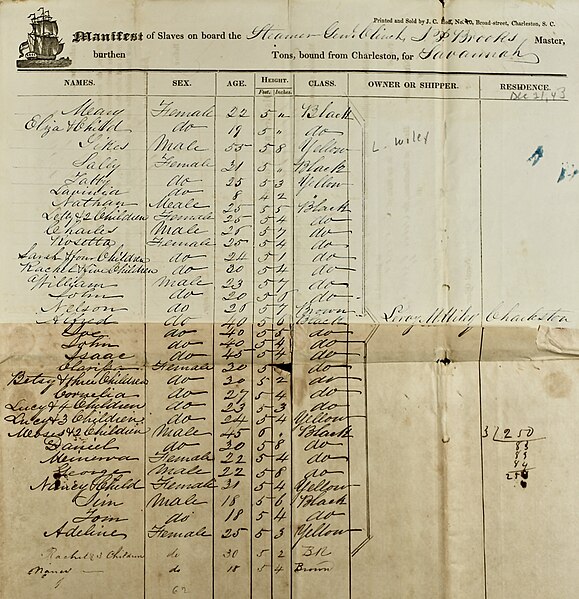 Printed and Sold by J. C. No. 40, Broad-street, Charleston, S. C.
Manifest of Slaves on board the Steamer Genl Clinch, Brooks Master,
burthen Tons, bound from Charleston, for Savannah
NAMES. SEX. AGE. HEIGHT. CLASS. OWNER OR SHIPPER. RESIDENCE.
Feet. Inches.
Dec 21, 43
Meary Female 22 5 " Black
Eliza & Child do 19 5 " do
Sikes Male 55 5 8 Yellow
L. Wiley
Sally Female 31 5 " Black
Tabby do 25 5 3 Yellow
Lavinia do 8 4 2
Nathan Meale 25 5 5 Black
Letty & 2 Children Female 25 5 4 do
Charles Male 26 5 7 do
Rosetta Female 25 5 4 do
Sarah & Four Children do 24 5 1 do
Rachel & Five Children do 30 5 4 do
William Male 23 5 7 do
John do 20 5 6 do
Nelson do 26 5 7 Brown
Leroy M Wiley Charleston
Alfred do 40 5 6 Black
Joe do 40 5 5 do
John do 40 5 4 do
Isaac do 45 5 4 do
Clarisa Female 20 5 do
Betsy & three Children do 30 5 2 do
Cornelia do 27 5 4 do
Lucy & 4 Children do 23 5 3 do
Lucy & 3 Children do 24 5 4 Yellow
Moses & 2 Children Male 45 6 Black
3/250
Daniel do 30 5 8 do
83
Menerva Female 22 5 4 do
83
George Male 22 5 8 do
84
250
Nancy & Child Female 31 5 4 Yellow
Jim Male 18 5 6 Black
Tom do 18 5 4 do
Adeline Female 25 5 3 Yellow
Rachel & 3 Children do 30 5 2 Bk
do 18 5 4 Brown
62